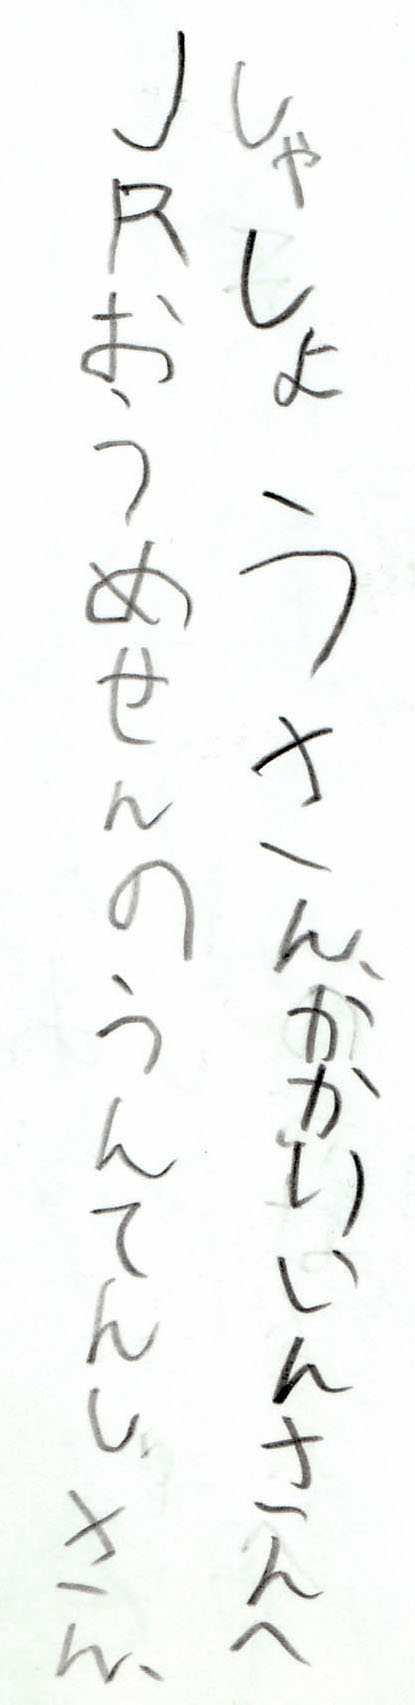 JRおうめせんのうんてんしさん、
しゃしょうさん、かかりいんさんへ